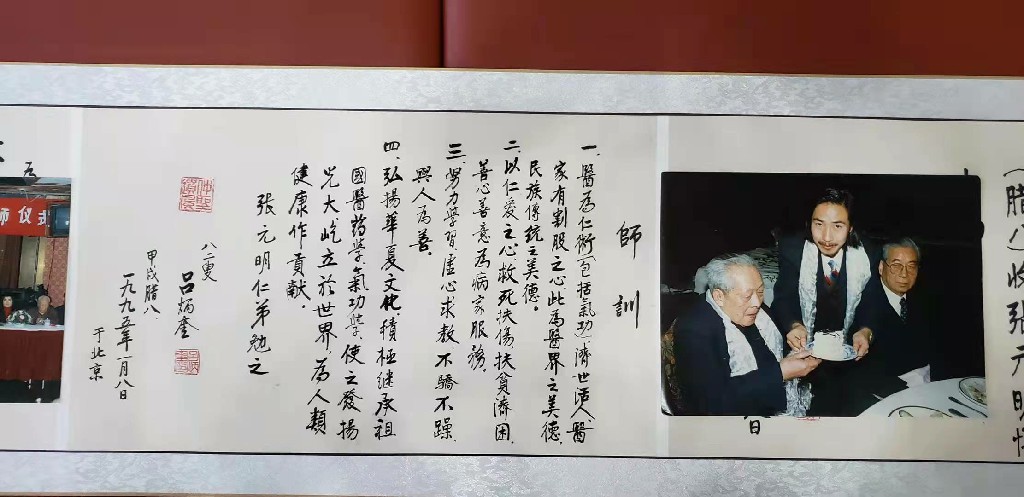 （腊八）收张元明
日
師訓
一、醫為仁術（包括氣功）濟世活人，醫
家有割股之心此為醫界之美德，
民族傳統之美德。
二、以仁爱之心救死扶傷扶貧濟困，
善心善意為病家服務。
三、努力學習虛心求教不驕不躁
與人為善。
四、弘揚華夏文化積極继承祖
國醫药學、氣功學，使之發揚
光大屹立於世界，為人類
健康作貢献。
张元明仁弟勉之
八二叟 吕炳奎
甲戌腊八
一九九五年一月八日
于北京
师仪式